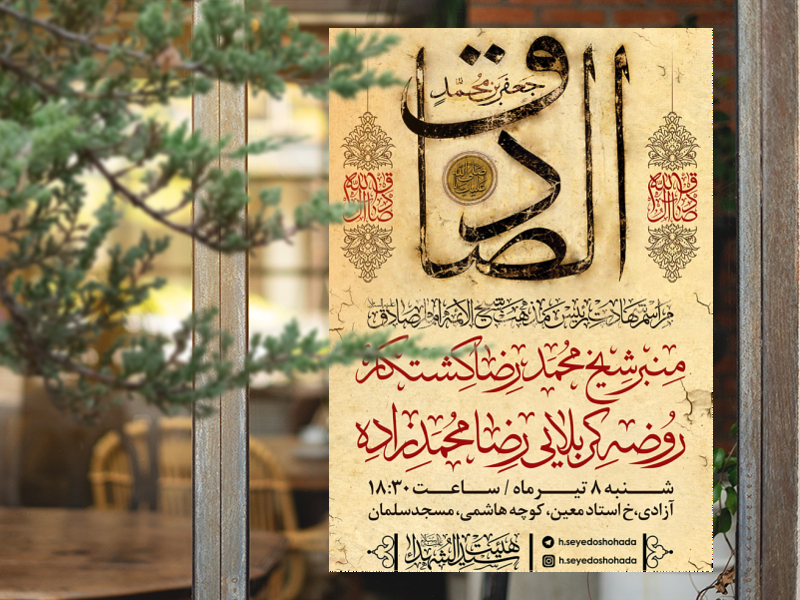 جعفر بن محمدٍ
الصادق
صادق آل الله
صادق آل الله
مراسم شهادت رئیس مذهب شیخ الائمه امام صادق
منبر شیخ محمدرضا کشتکار
روضه کربلایی رضا محمدزاده
شنبه ۸ تیرماه / ساعت ۱۸:۳۰
آزادی، خ استاد معین، کوچه هاشمی، مسجد سلمان
هیئت سیدالشهدا
h.seyedoshohada
h.seyedoshohada